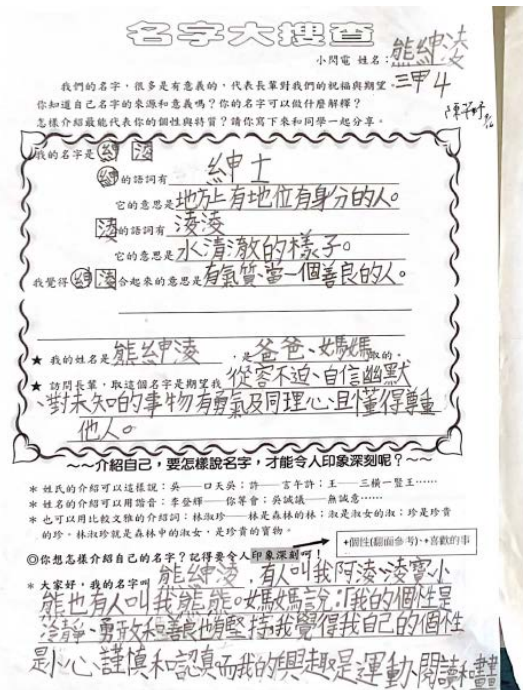 名字大搜查
小閃電 姓名：熊紳淩
三甲 4
我們的名字，很多是有意義的，代表長輩對我們的祝福與期望。
你知道自己名字的來源和意義嗎？你的名字可以做什麼解釋？
怎樣介紹最能代表你的個性與特質？請你寫下來和同學一起分享。
我的名字是 紳 淩
紳的語詞有 紳士
它的意思是地方上有地位有身分的人。
淩的語詞有 淩淩
它的意思是水清澈的樣子。
我覺得 紳 淩 合起來的意思是有氣質、當一個善良的人。
★ 我的姓名是熊紳淩，是爸爸、媽媽取的。
★ 訪問長輩，取這個名字是期望我 從容不迫、自信幽默
、對未知的事物有勇氣及同理心、且懂得尊重
他人。
～～介紹自己，要怎樣說名字，才能令人印象深刻呢？～～
＊ 姓氏的介紹可以這樣說：吳──口天吳；許──言午許；王──三橫一豎王……
＊ 姓名的介紹可以用諧音：李登輝──你等會；吳誠議──無誠意……
＊ 也可以用比較文雅的介紹詞：林淑珍──林是森林的林；淑是淑女的淑；珍是珍貴
的珍。林淑珍就是森林中的淑女，是珍貴的寶物。
+個性(翻面參考)、+喜歡的事
◎你想怎樣介紹自己的名字？記得要令人印象深刻呵！
＊ 大家好，我的名字叫 熊紳淩，有人叫我阿淩、淩寶、小
熊也有人叫我熊熊。媽媽說：「我的個性是
冷靜、勇敢和善良也有堅持我覺得我自己的個性
是小心、謹慎和認真而我的興趣是運動、閱讀和畫